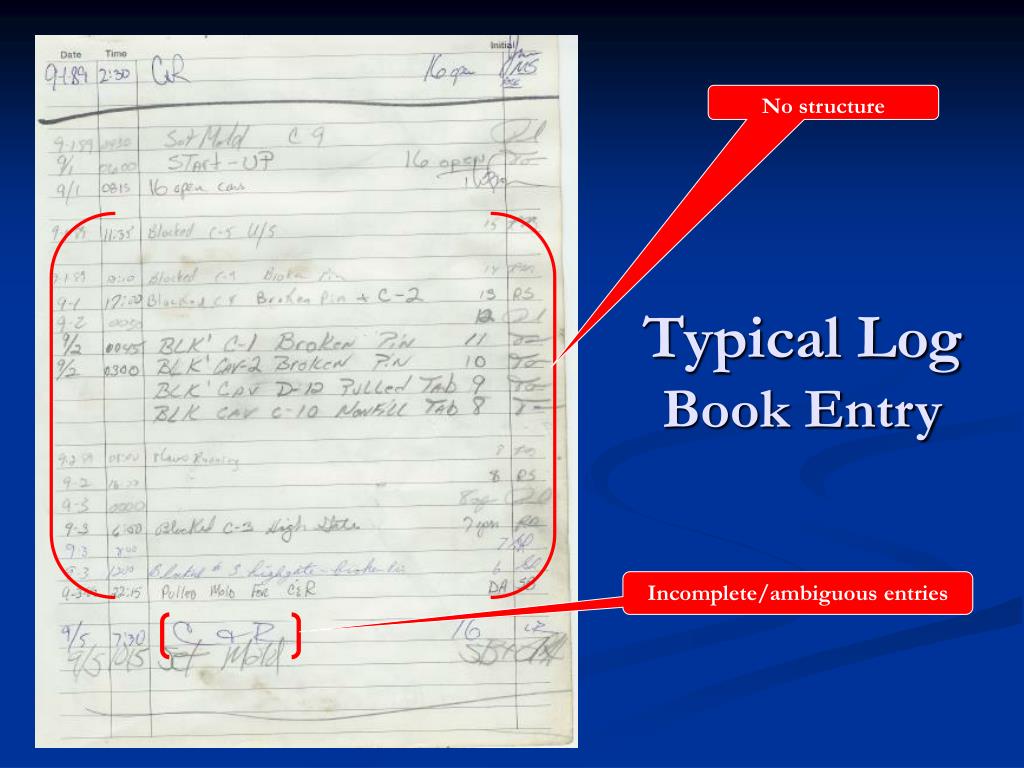 Date Time Initial
9-1-89 2:30 C&R 16 open MS
9-1-89 0430 Set Mold C 9
9/1 0600 START-UP 16 open
9/1 0815 16 open cavs
11:35 Blocked C-5 U/S 15
9-1-89 Blocked C-9 Broken Pin 14
9-1 17:00 Blocked C 8 Broken Pin & C-2 13 RS
9-2 0030 12
9/2 0045 BLK' C-1 Broken Pin 11
9/2 0300 BLK' CAV-2 Broken Pin 10
BLK' CAV D-12 Pulled Tab 9
BLK CAV C-10 NonFill TAB 8
9-2-89 08:00 Running 8
9-2 8 RS
9-3 0000
9-3 6:50 Blocked C-3 High Gate 7 open
9-3 7
9-3 1200 Blocked # 3 highgate - broken Pin 6
9-3-89 22:15 Pulled Mold For C&R DA
9/5 7:30 C & R 16
9/5 1015 Set Mold
No structure
Typical Log
Book Entry
Incomplete/ambiguous entries